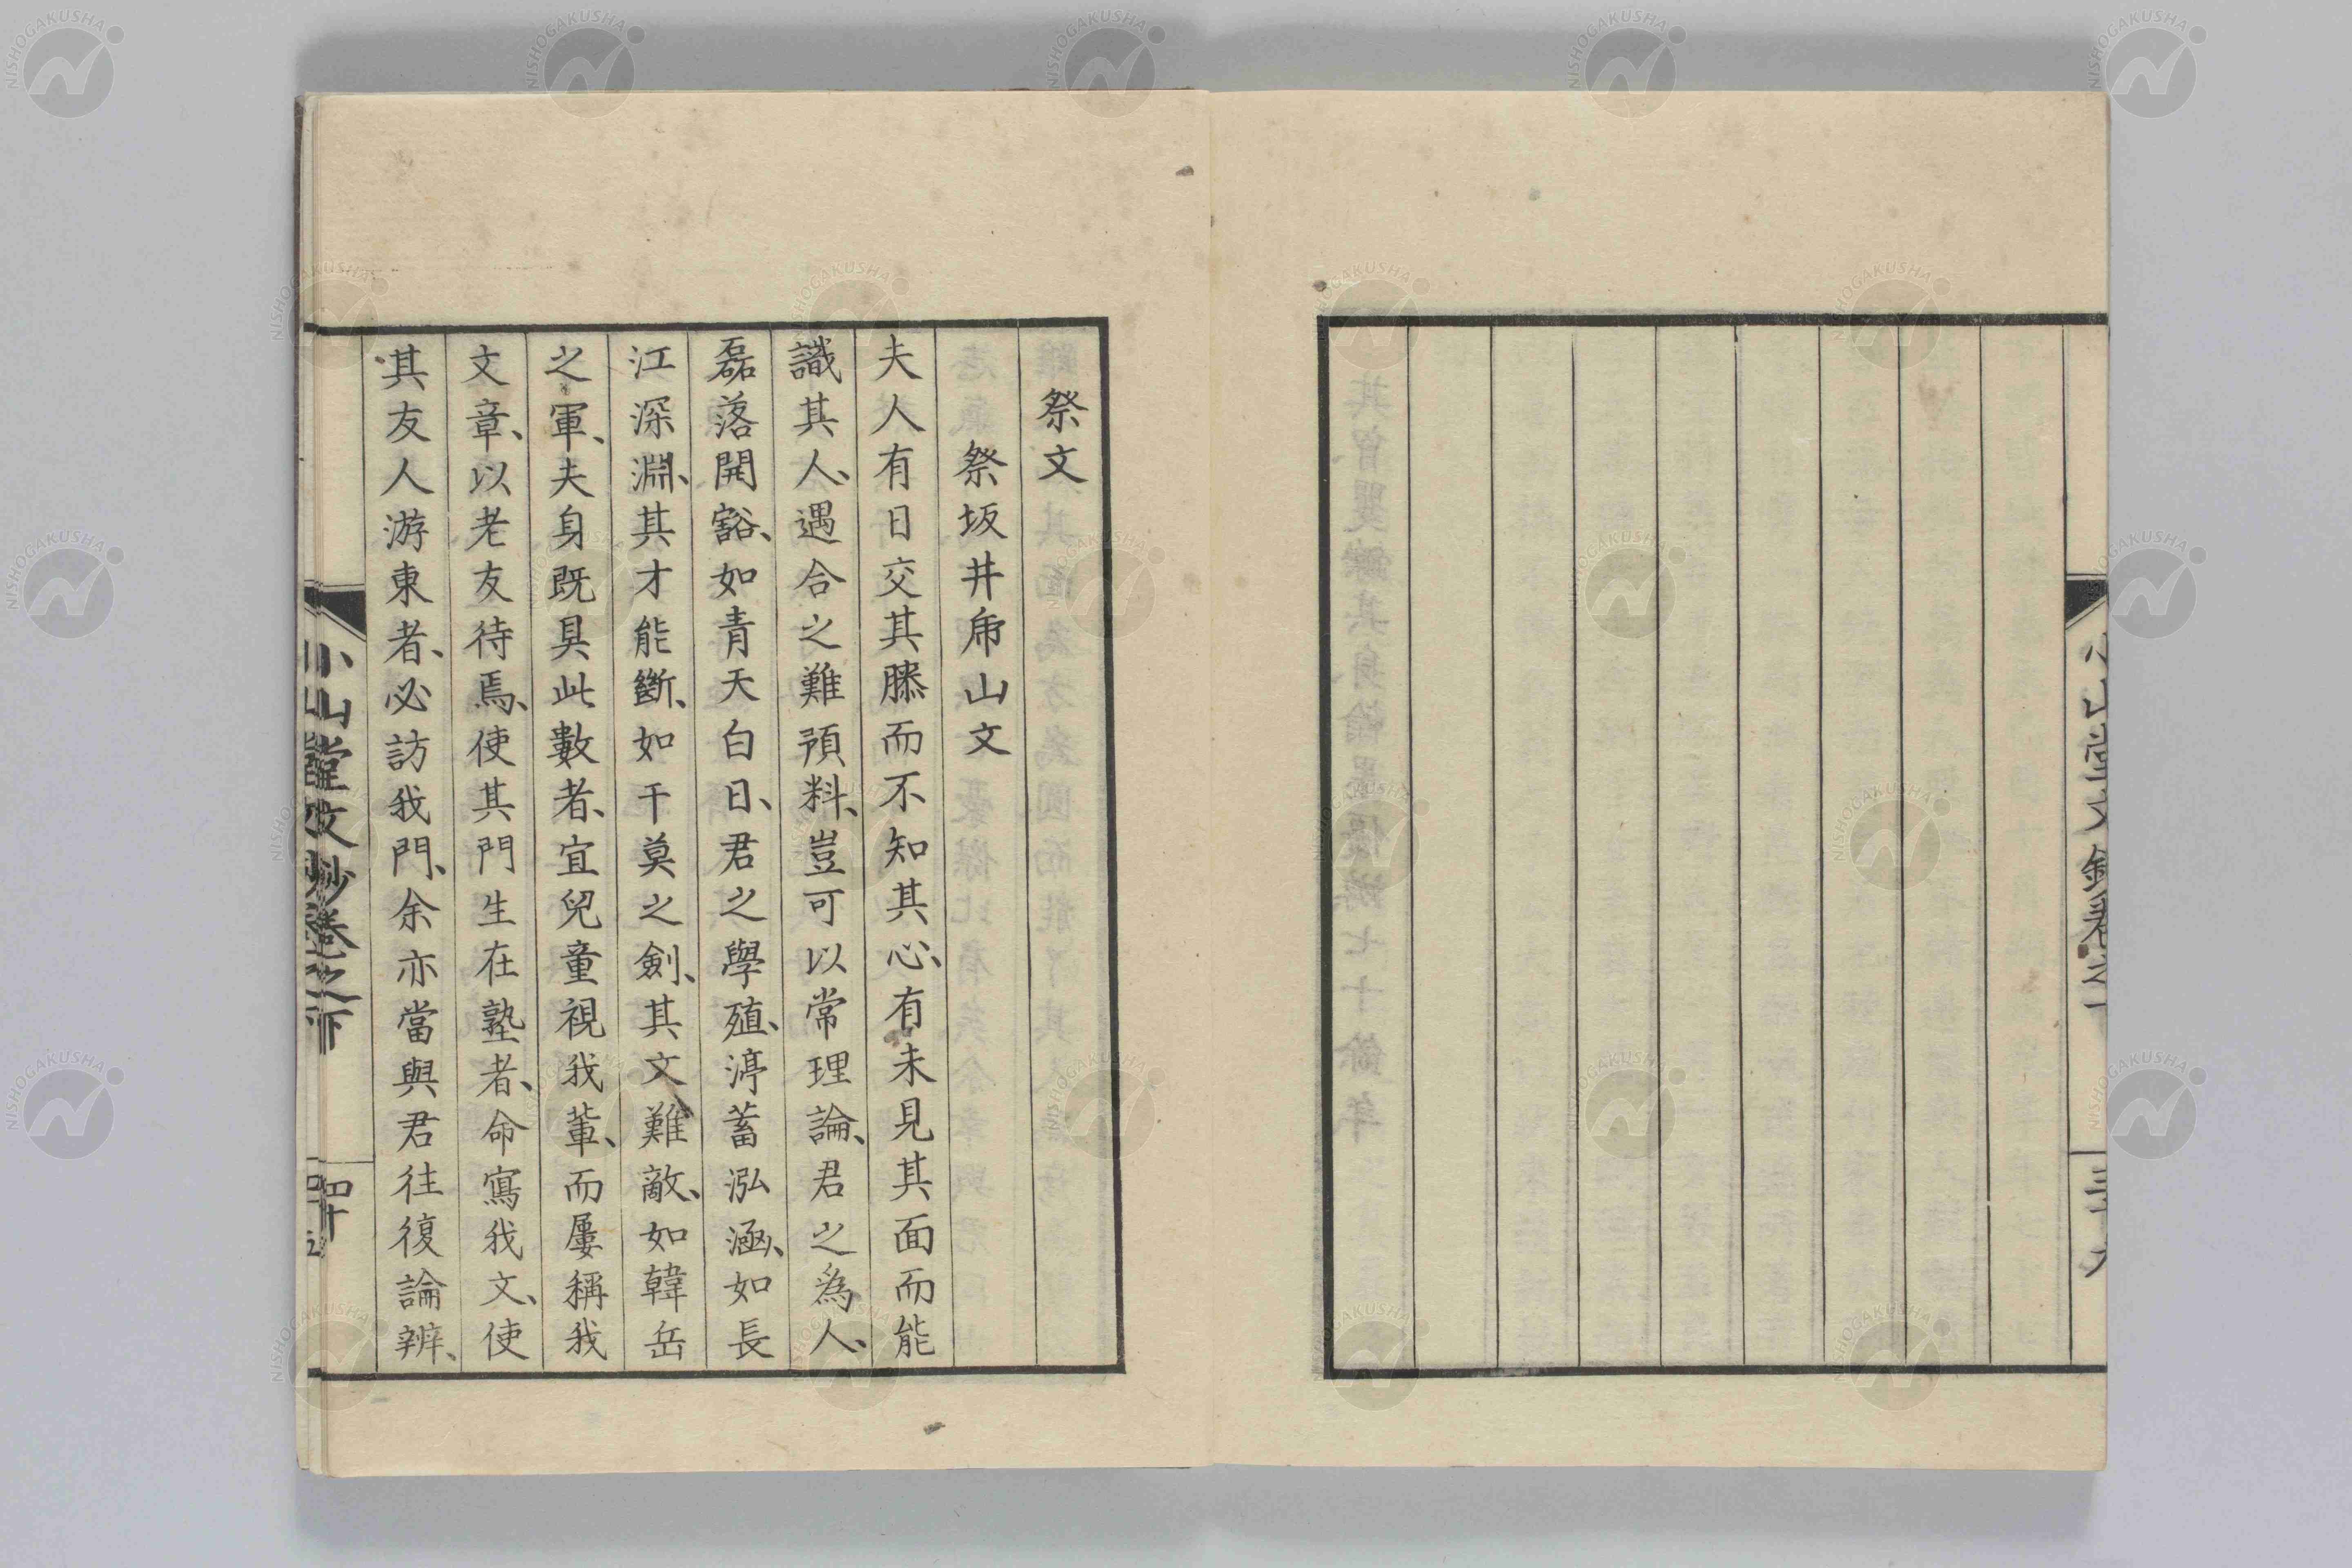 祭文
祭坂井帍山文
夫人有日交其膝而不知其心、有未見其面而能
識其人、遇合之難預料、豈可以常理論、君之爲人、
磊落開豁、如青天白日、君之學殖、渟蓄泓涵、如長
江深淵、其才能斷、如干莫之劍、其文難敵、如韓岳
之軍、夫身既具此數者、宜兒童視我輩、而屢稱我
文章、以老友待焉、使其門生在塾者、命寫我文、使
其友人游東者、必訪我門、余亦當與君往復論辨、
小山堂文鈔卷之下
四十
NISHOGAKUSHA